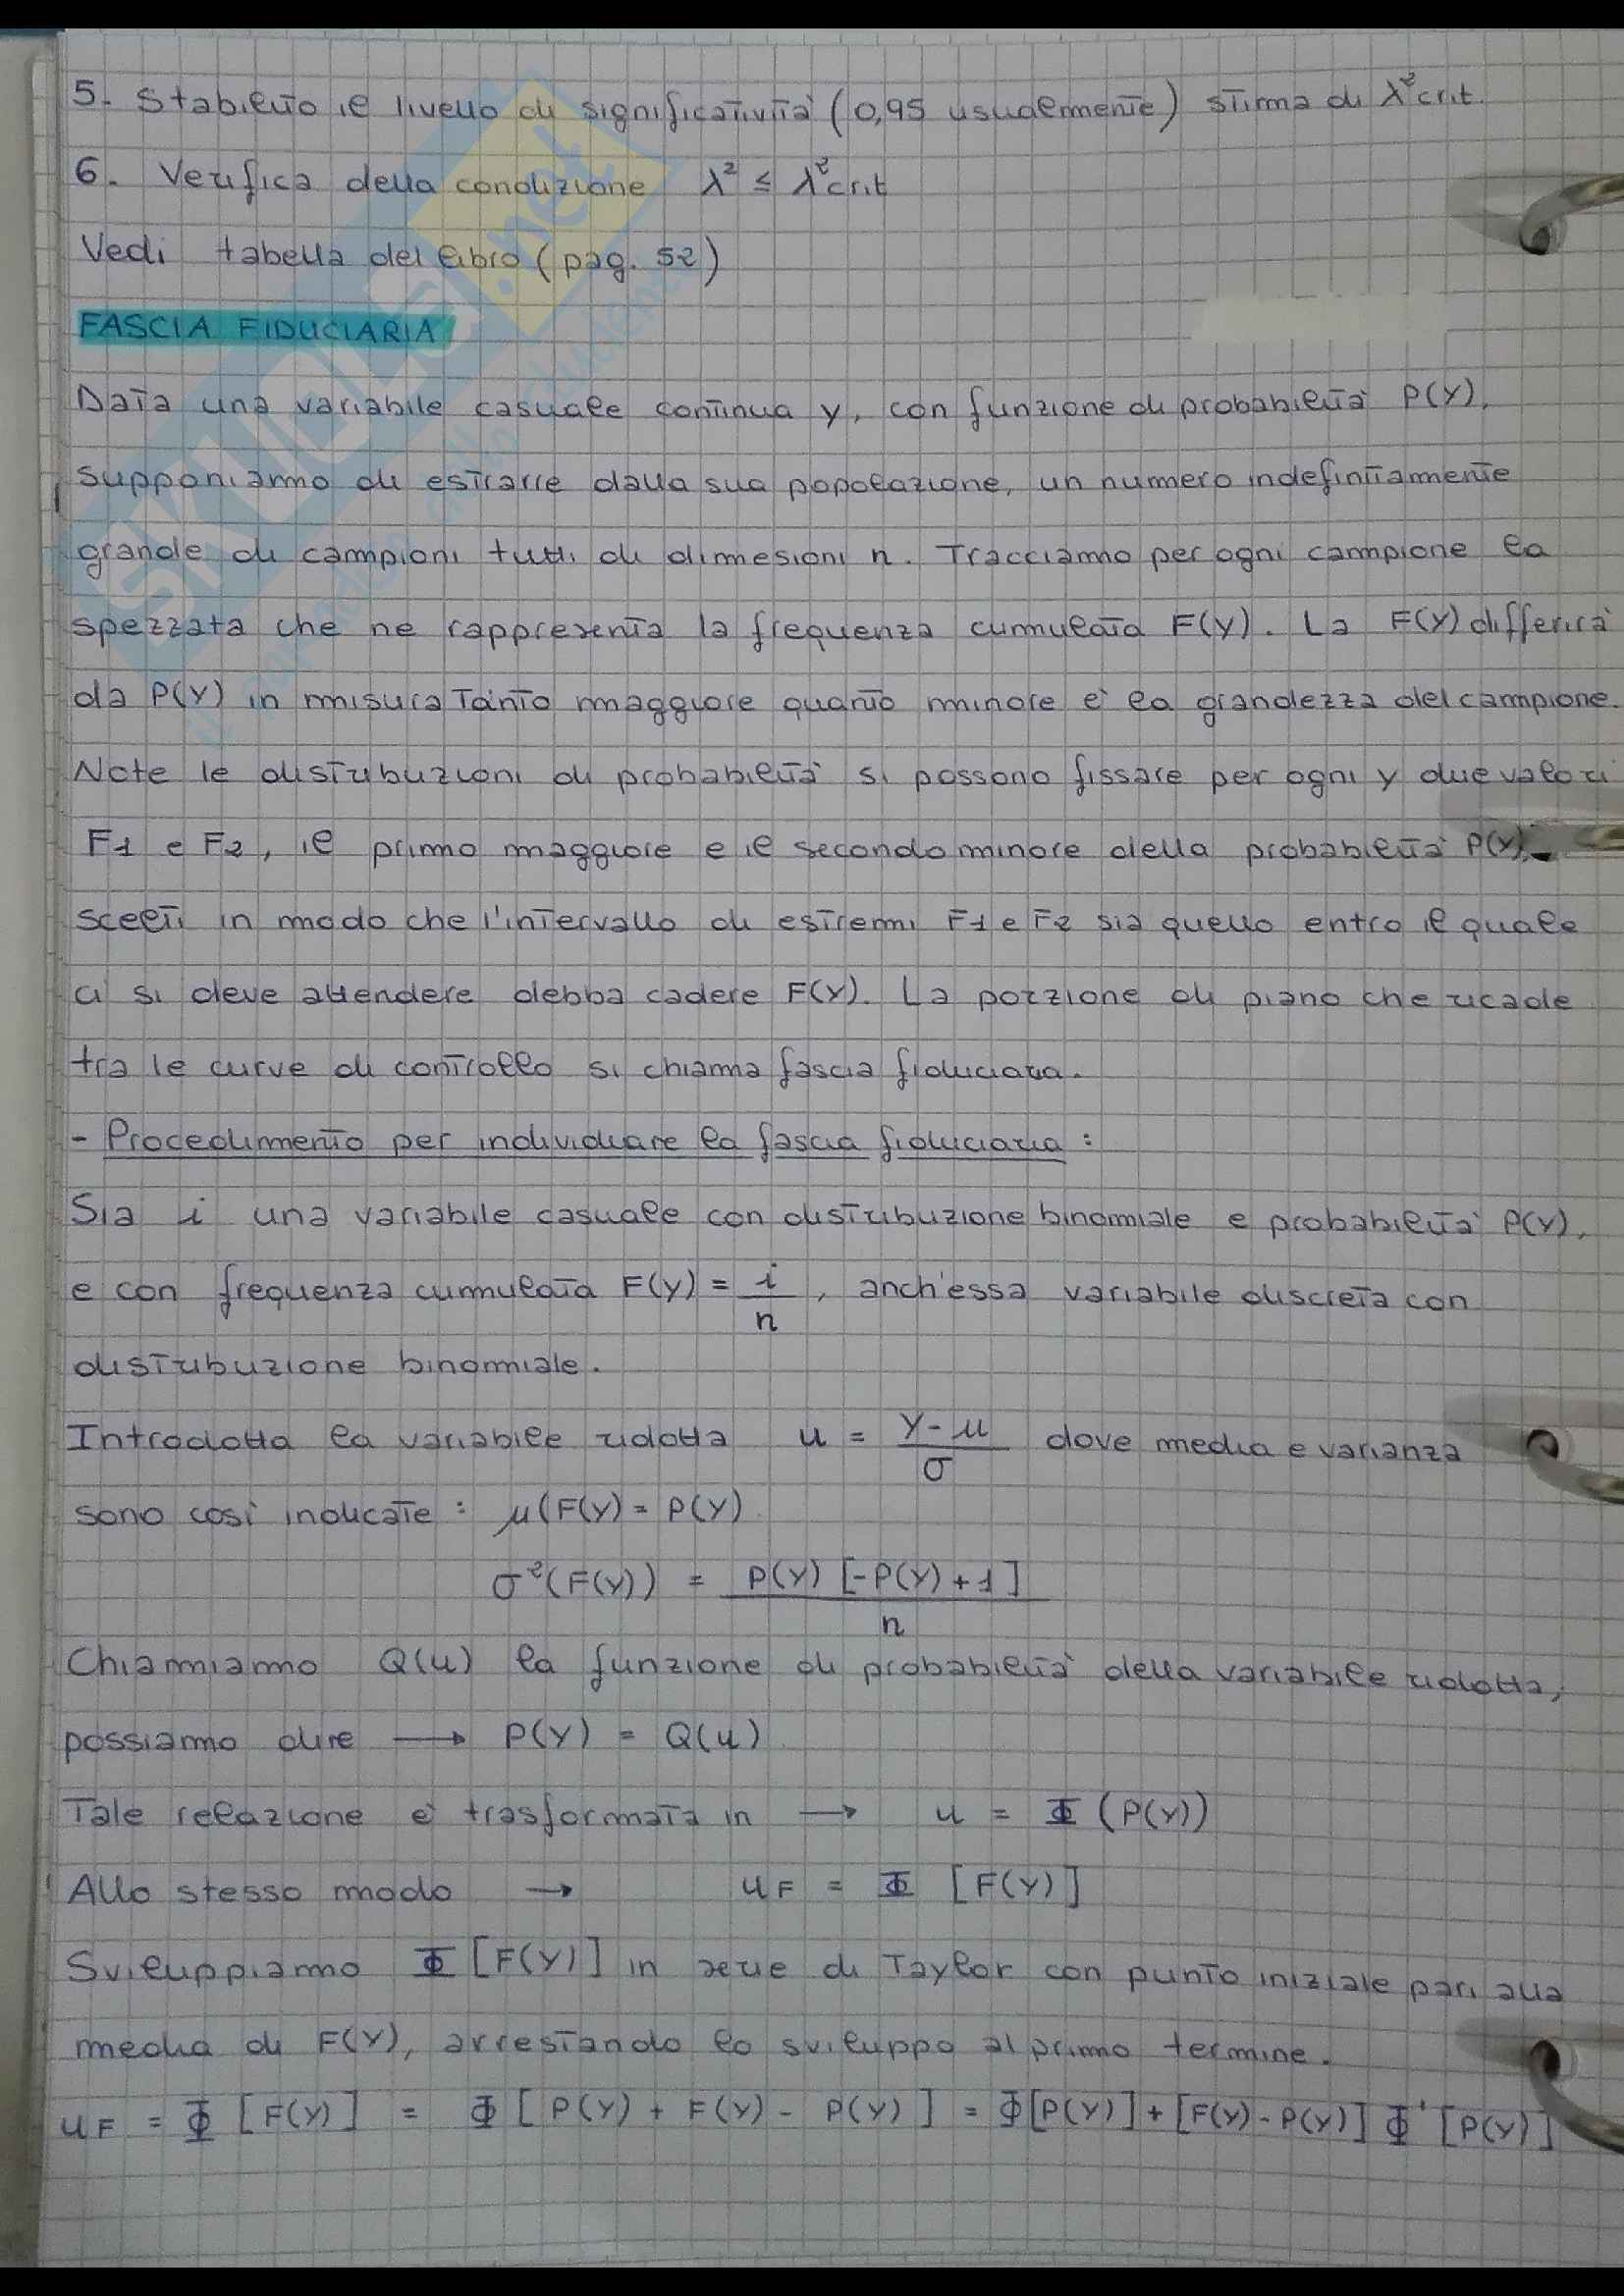 5. Stabilito il livello di significatività (0,95 usualmente) stima di λ²crit.
6. Verifica della condizione λ² ≤ λ²crit
Vedi tabella del libro (pag. 52)
FASCIA FIDUCIARIA
Data una variabile casuale continua y, con funzione di probabilità P(Y),
supponiamo di estrarre dalla sua popolazione, un numero indefinitamente
grande di campioni tutti di dimesioni n. Tracciamo per ogni campione la
spezzata che ne rappresenta la frequenza cumulata F(Y). La F(Y) differirà
da P(Y) in misura tanto maggiore quanto minore è la grandezza del campione.
Note le distribuzioni di probabilità si possono fissare per ogni y due valori
F1 e F2, il primo maggiore e il secondo minore della probabilità P(Y),
scelti in modo che l'intervallo di estremi F1 e F2 sia quello entro il quale
ci si deve attendere debba cadere F(Y). La porzione di piano che ricade
tra le curve di controllo si chiama fascia fiduciaria.
- Procedimento per individuare la fascia fiduciaria :
Sia i una variabile casuale con distribuzione binomiale e probabilità P(Y),
e con frequenza cumulata F(Y) = i/n , anch'essa variabile discreta con
distribuzione binomiale.
Introdotta la variabile ridotta u = (Y-μ)/σ dove media e varianza
sono così indicate : μ(F(Y) = P(Y)
σ²(F(Y)) = P(Y) [-P(Y)+1] / n
Chiamiamo Q(u) la funzione di probabilità della variabile ridotta,
possiamo dire → P(Y) = Q(u)
Tale relazione è trasformata in → u = Φ (P(Y))
Allo stesso modo → uF = Φ [F(Y)]
Sviluppiamo Φ [F(Y)] in serie di Taylor con punto iniziale pari alla
media di F(Y), arrestando lo sviluppo al primo termine.
uF = Φ [F(Y)] = Φ [P(Y) + F(Y) - P(Y)] = Φ[P(Y)] + [F(Y) - P(Y)] Φ' [P(Y)]
SKUOLA.net